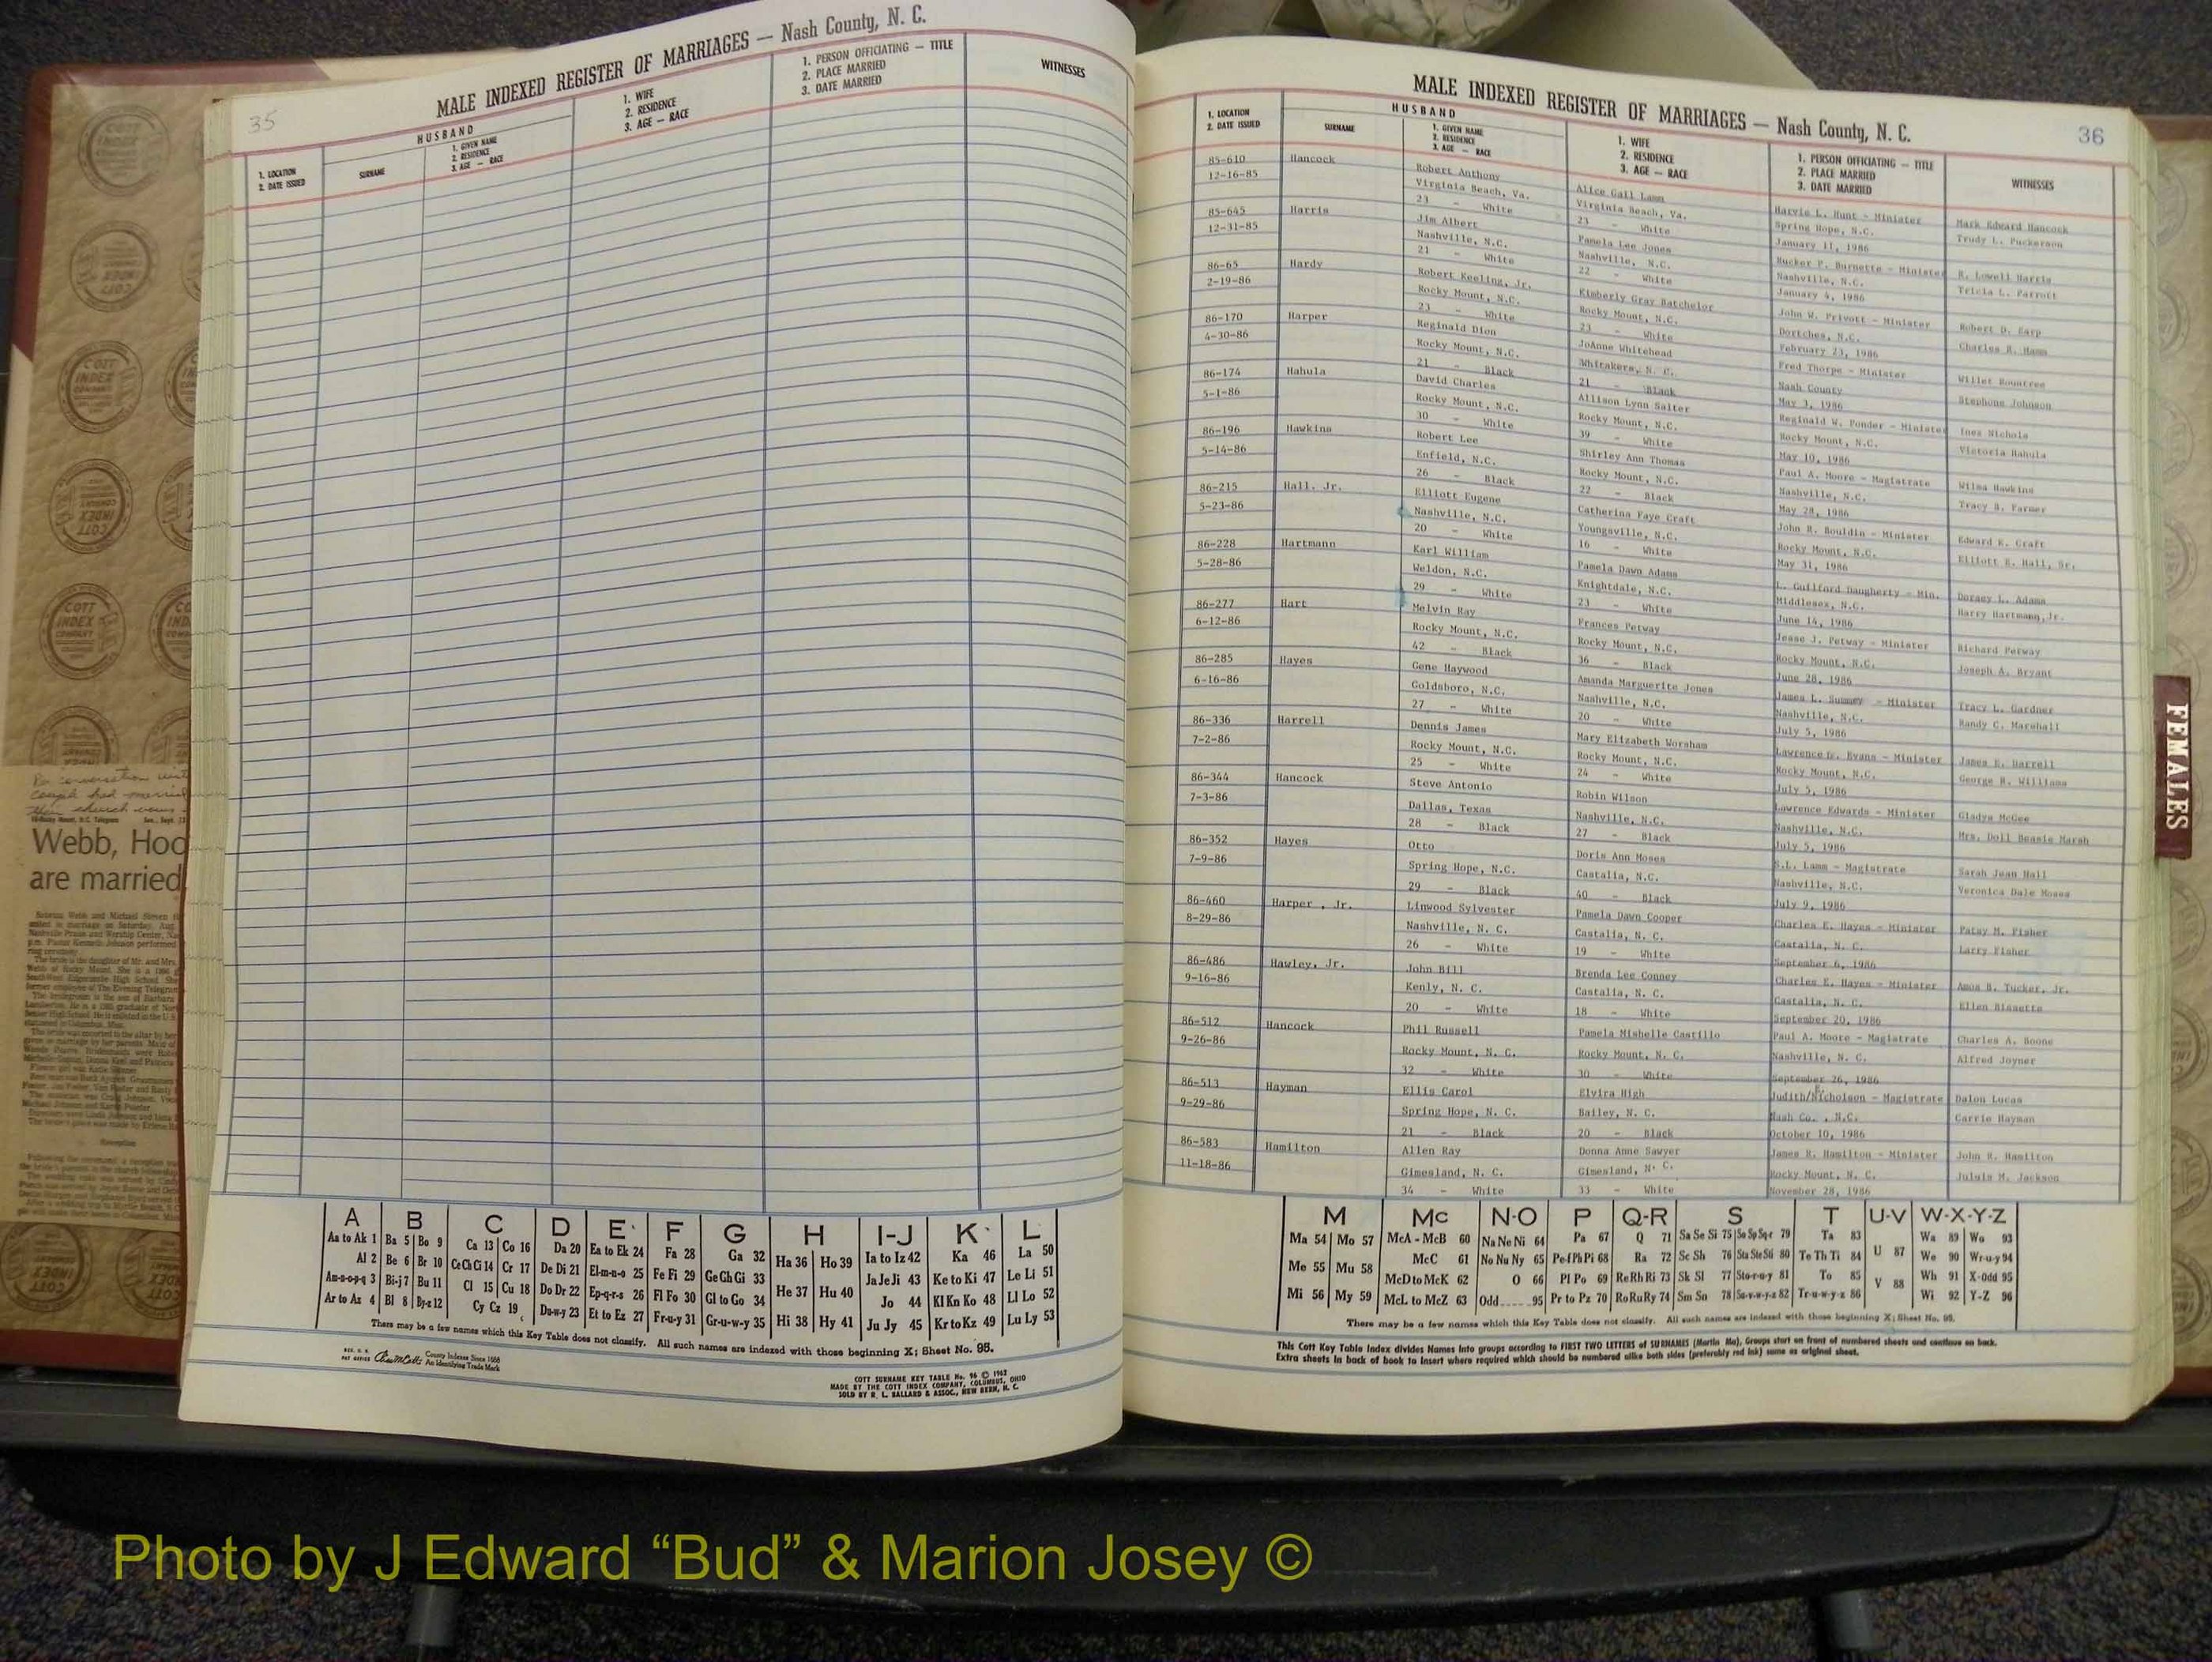 35
MALE INDEXED REGISTER OF MARRIAGES — Nash County, N. C.
1. LOCATION
2. DATE ISSUED
HUSBAND
SURNAME
1. GIVEN NAME
2. RESIDENCE
3. AGE — RACE
1. WIFE
2. RESIDENCE
3. AGE — RACE
1. PERSON OFFICIATING — TITLE
2. PLACE MARRIED
3. DATE MARRIED
WITNESSES
Webb, Hoo
are married
A B C D E F G H I-J K L
Aa to Ak 1 Ba 5 Bo 9 Ca 13 Co 16 Da 20 Ea to Ek 24 Fa 28 Ga 32 Ha 36 Ho 39 Ia to Iz 42 Ka 46 La 50
Al 2 Be 6 Br 10 Ce Ch Ci 14 Cr 17 De Di 21 El-m-n-o 25 Fe Fi 29 Ge Gh Gi 33 He 37 Hu 40 Ja Je Ji 43 Ke to Ki 47 Le Li 51
Am-n-o-p-q 3 Bi-j 7 Bu 11 Cl 15 Cu 18 Do Dr 22 Ep-q-r-s 26 Fl Fo 30 Gl to Go 34 Hi 38 Hy 41 Jo 44 Kl Kn Ko 48 Ll Lo 52
Ar to Az 4 Bl 8 By-z 12 Cy Cz 19 Du-w-y 23 Et to Ez 27 Fr-u-y 31 Gr-u-w-y 35 Ju Jy 45 Kr to Kz 49 Lu Ly 53
There may be a few names which this Key Table does not classify. All such names are indexed with those beginning X; Sheet No. 95.
County Indexes Since 1888
An Identifying Trade Mark
COTT SURNAME KEY TABLE No. 96 © 1962
MADE BY THE COTT INDEX COMPANY, COLUMBUS, OHIO
SOLD BY R. L. BALLARD & ASSOC., NEW BERN, N. C.
MALE INDEXED REGISTER OF MARRIAGES — Nash County, N. C.
36
1. LOCATION
2. DATE ISSUED
HUSBAND
SURNAME
1. GIVEN NAME
2. RESIDENCE
3. AGE — RACE
1. WIFE
2. RESIDENCE
3. AGE — RACE
1. PERSON OFFICIATING — TITLE
2. PLACE MARRIED
3. DATE MARRIED
WITNESSES
85-610 Hancock Robert Anthony Alice Gail Lamm Harvie L. Hunt - Minister Mark Edward Hancock
12-16-85 Virginia Beach, Va. Virginia Beach, Va. Spring Hope, N.C. Trudy L. Puckerson
23 - White 23 - White January 11, 1986
85-645 Harris Jim Albert Pamela Lee Jones Rucker P. Burnette - Minister R. Lowell Harris
12-31-85 Nashville, N.C. Nashville, N.C. Nashville, N.C. Tricia L. Parrott
21 - White 22 - White January 4, 1986
86-65 Hardy Robert Keeling, Jr. Kimberly Gray Batchelor John W. Privott - Minister Robert D. Earp
2-19-86 Rocky Mount, N.C. Rocky Mount, N.C. Dortches, N.C. Charles R. Hamm
23 - White 23 - White February 23, 1986
86-170 Harper Reginald Dion JoAnne Whitehead Fred Thorpe - Minister Willet Rountree
4-30-86 Rocky Mount, N.C. Whitakers, N. C. Nash County Stephone Johnson
21 - Black 21 - Black May 3, 1986
86-174 Hahula David Charles Allison Lynn Salter Reginald W. Ponder - Minister Ines Nichols
5-1-86 Rocky Mount, N.C. Rocky Mount, N.C. Rocky Mount, N.C. Victoria Hahula
30 - White 39 - White May 10, 1986
86-196 Hawkins Robert Lee Shirley Ann Thomas Paul A. Moore - Magistrate Wilma Hawkins
5-14-86 Enfield, N.C. Rocky Mount, N.C. Nashville, N.C. Tracy B. Farmer
26 - Black 22 - Black May 28, 1986
86-215 Hall, Jr. Elliott Eugene Catherina Faye Craft John R. Bouldin - Minister Edward E. Craft
5-23-86 Nashville, N.C. Youngsville, N.C. Rocky Mount, N.C. Elliott E. Hall, Sr.
20 - White 16 - White May 31, 1986
86-228 Hartmann Karl William Pamela Dawn Adams L. Guilford Daugherty - Min. Dorsey L. Adams
5-28-86 Weldon, N.C. Knightdale, N.C. Middlesex, N.C. Harry Hartmann, Jr.
29 - White 23 - White June 14, 1986
86-277 Hart Melvin Ray Frances Petway Jesse J. Petway - Minister Richard Petway
6-12-86 Rocky Mount, N.C. Rocky Mount, N.C. Rocky Mount, N.C. Joseph A. Bryant
42 - Black 36 - Black June 28, 1986
86-285 Hayes Gene Haywood Amanda Marguerite Jones James L. Summey - Minister Tracy L. Gardner
6-16-86 Goldsboro, N.C. Nashville, N.C. Nashville, N.C. Randy C. Marshall
27 - White 20 - White July 5, 1986
86-336 Harrell Dennis James Mary Elizabeth Worsham Lawrence E. Evans - Minister James E. Harrell
7-2-86 Rocky Mount, N.C. Rocky Mount, N.C. Rocky Mount, N.C. George R. Williams
25 - White 24 - White July 5, 1986
86-344 Hancock Steve Antonio Robin Wilson Lawrence Edwards - Minister Gladys McGee
7-3-86 Dallas, Texas Nashville, N.C. Nashville, N.C. Mrs. Doll Beasie Marsh
28 - Black 27 - Black July 5, 1986
86-352 Hayes Otto Doris Ann Moses S.L. Lamm - Magistrate Sarah Jean Hall
7-9-86 Spring Hope, N.C. Castalia, N.C. Nashville, N.C. Veronica Dale Moses
29 - Black 40 - Black July 9, 1986
86-460 Harper , Jr. Linwood Sylvester Pamela Dawn Cooper Charles E. Hayes - Minister Patsy M. Fisher
8-29-86 Nashville, N. C. Castalia, N. C. Castalia, N. C. Larry Fisher
26 - White 19 - White September 6, 1986
86-486 Hawley, Jr. John Bill Brenda Lee Conney Charles E. Hayes - Minister Amos B. Tucker, Jr.
9-16-86 Kenly, N. C. Castalia, N. C. Castalia, N. C. Ellen Bissette
20 - White 18 - White September 20, 1986
86-512 Hancock Phil Russell Pamela Mishelle Castillo Paul A. Moore - Magistrate Charles A. Boone
9-26-86 Rocky Mount, N. C. Rocky Mount, N. C. Nashville, N. C. Alfred Joyner
32 - White 30 - White September 26, 1986
86-513 Hayman Ellis Carol Elvira High Judith/Nicholson - Magistrate Dalon Lucas
9-29-86 Spring Hope, N. C. Bailey, N. C. Nash Co. , N.C. Carrie Hayman
21 - Black 20 - Black October 10, 1986
86-583 Hamilton Allen Ray Donna Anne Sawyer James R. Hamilton - Minister John R. Hamilton
11-18-86 Gimesland, N. C. Gimesland, N. C. Rocky Mount, N. C. Julais M. Jackson
34 - White 33 - White November 28, 1986
M Mc N-O P Q-R S T U-V W-X-Y-Z
Ma 54 Mo 57 McA - McB 60 Na Ne Ni 64 Pa 67 Q 71 Sa Se Si 75 So Sp Sq-r 79 Ta 83 U 87 Wa 89 Wo 93
Me 55 Mu 58 McC 61 No Nu Ny 65 Pe-f Ph Pi 68 Ra 72 Sc Sh 76 Sta Ste Sti 80 Te Th Ti 84 V 88 We 90 Wr-u-y 94
Mi 56 My 59 McD to McK 62 O 66 Pl Po 69 Re Rh Ri 73 Sk Sl 77 Sto-r-u-y 81 To 85 Wh 91 X-Odd 95
McL to McZ 63 Odd 95 Pr to Pz 70 Ro Ru Ry 74 Sm Sn 78 Su-v-w-y-z 82 Tr-u-w-y-z 86 Wi 92 Y-Z 96
There may be a few names which this Key Table does not classify. All such names are indexed with those beginning X; Sheet No. 95.
This Cott Key Table Index divides Names into groups according to FIRST TWO LETTERS of SURNAMES (Martin Ma), Groups start on front of numbered sheets and continue on back.
Extra sheets in back of book to insert where required which should be numbered alike both sides (preferably red ink) same as original sheet.
FEMALES
Photo by J Edward “Bud” & Marion Josey ©